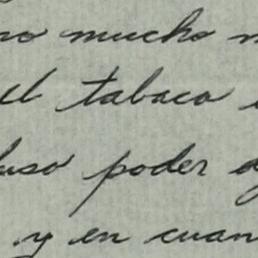 no mucho
el tabaco
luso poder
y en cuan